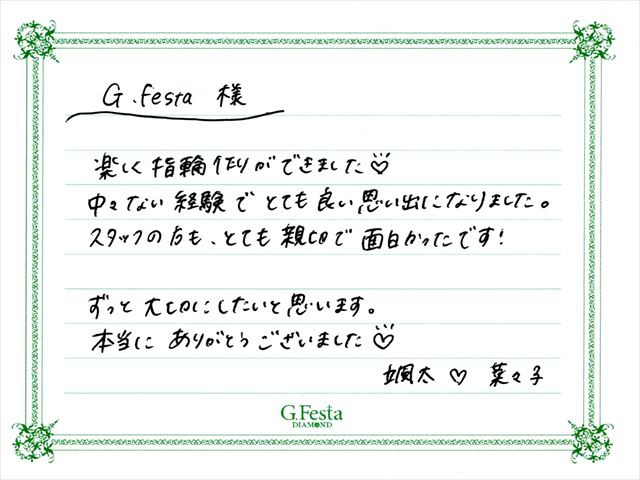 G.Festa 様
楽しく指輪作りができました♡
中々ない経験でとても良い思い出になりました。
スタッフの方も、とても親切で面白かったです!
ずっと大切にしたいと思います。
本当にありがとうございました♡
太 ♡ 菜々子
G.Festa
DIAMOND